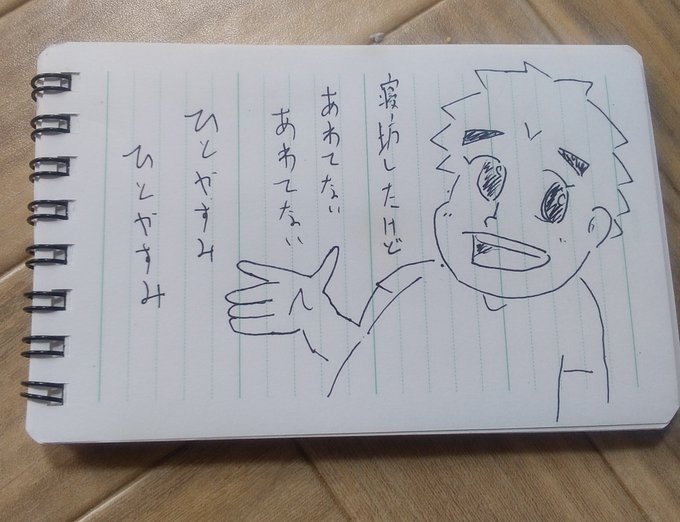 寝坊したけど
あわてない
あわてない
ひとやすみ
ひとやすみ